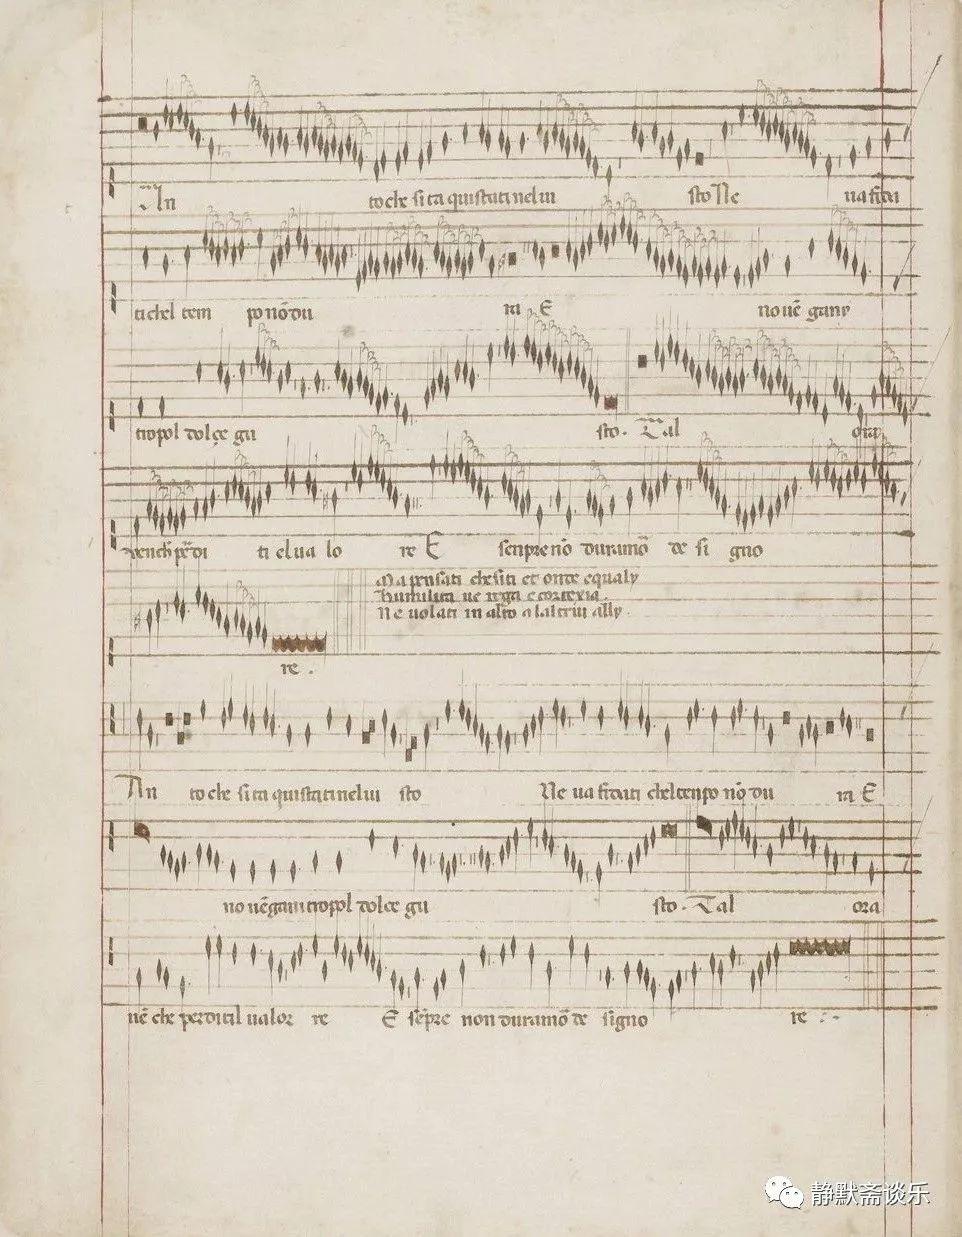 An to che si ta quistati nel ui sto Ne ua fidati
ti chel tem po nō du ra E no uē gany
tropol dolçe gu sto. Tal ora
ti el ua lo re E senpre nō duramō de si gno
Ma pensati che siti et onde equaly
Humilita ue rega e cortexia.
Ne uolati in alto a laltrui ally.
re.
An to che si ta quistati nel ui sto Ne ua fidati chel tenpo nō du ra E
no uēgani tropol dolce gu sto. Tal ora
uē che perdi til ualor re E sēpre non duramō de signo re
静默斋谈乐